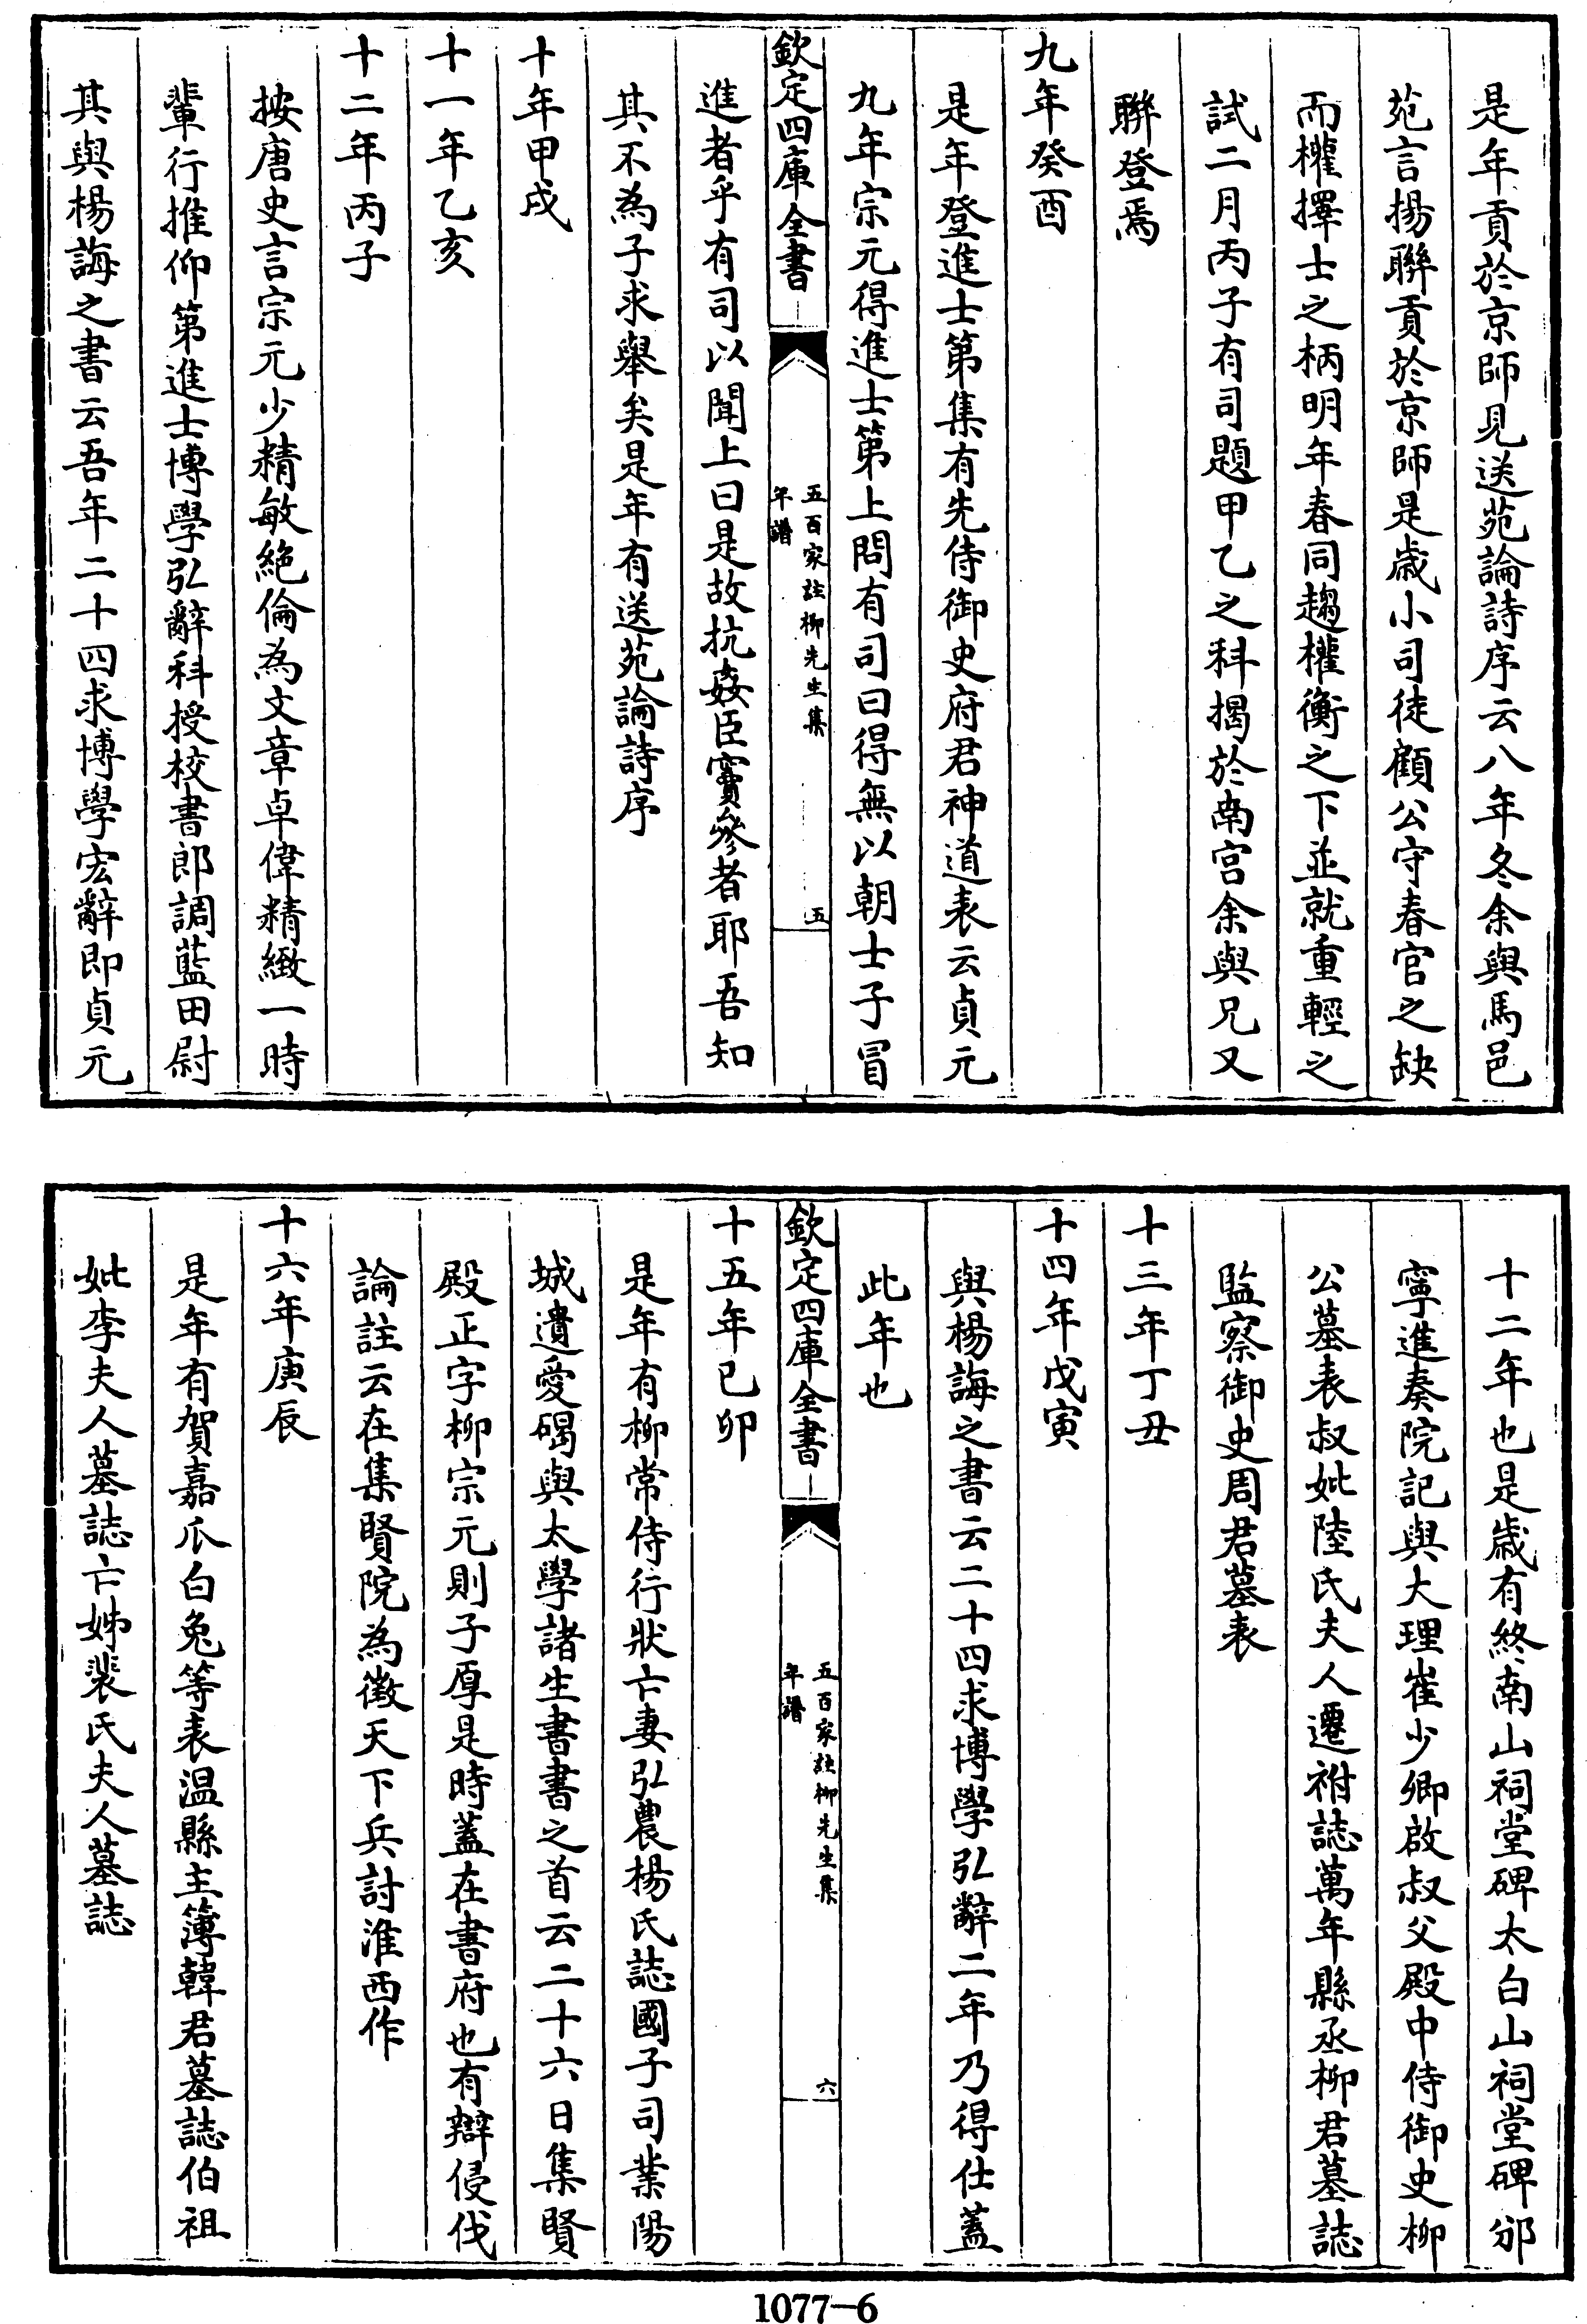 是年貢於京師見送苑論詩序云八年冬余與馬邑
苑言揚聯貢於京師是歲小司徒顧公守春官之缺
而權擇士之柄明年春同趨權衡之下並就重輕之
試二月丙子有司題甲乙之科揭於南宫余與兄又
聯登焉
九年癸酉
是年登進士第集有先侍御史府君神道表云貞元
九年宗元得進士第上問有司曰得無以朝士子冒
欽定四庫全書
五百家註柳先生集
年譜
五
進者乎有司以聞上曰是故抗姦臣竇參者耶吾知
其不為子求舉矣是年有送苑論詩序
十年甲戌
十一年乙亥
十二年丙子
按唐史言宗元少精敏絶倫為文章卓偉精緻一時
輩行推仰第進士博學弘辭科授校書郎調藍田尉
其與楊誨之書云吾年二十四求博學宏辭即貞元
十二年也是歲有終南山祠堂碑太白山祠堂碑邠
寧進奏院記與大理崔少卿啟叔父殿中侍御史柳
公墓表叔妣陸氏夫人遷祔誌萬年縣丞柳君墓誌
監察御史周君墓表
十三年丁丑
十四年戊寅
與楊誨之書云二十四求博學弘辭二年乃得仕蓋
此年也
欽定四庫全書
五百家註柳先生集
年譜
六
十五年已卯
是年有柳常侍行狀亡妻弘農楊氏誌國子司業陽
城遺愛碣與太學諸生書書之首云二十六日集賢
殿正字柳宗元則子厚是時蓋在書府也有辯侵伐
論註云在集賢院為徵天下兵討淮西作
十六年庚辰
是年有賀嘉瓜白兔等表温縣主簿韓君墓誌伯祖
妣李夫人墓誌亡姊裴氏夫人墓誌
1077—6